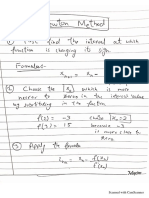 Newton Method
① First find the interval at which
function is changing its sign.
Formulae:-
Xn+1 = Xn -
② Choose the x₀ which is more
nearer to zero in the interval value
by substituting in the function
f(2) = -3
f(3) = 15
because -3
is more close
to zero.
③ Apply the formula
f(Xn)
f'(Xn)
Scanned with CamScanner